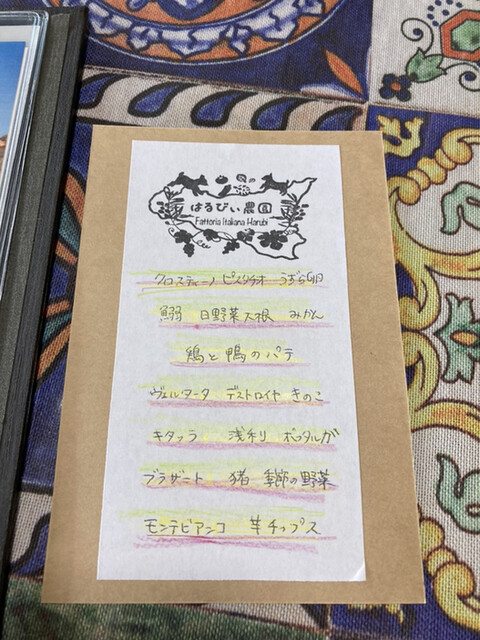 森の
はるびぃ農園
Fattoria Italiana Harubi
クロスティーノ ピスタチオ うずら卵
鰯 日野菜大根 みかん
鶏と鴨のパテ
ヴェルタータ デストロイヤ きのこ
キタッラ 浅利 ボッタルガ
ブラザート 猪 季節の野菜
モンテビアンコ 芋チップス